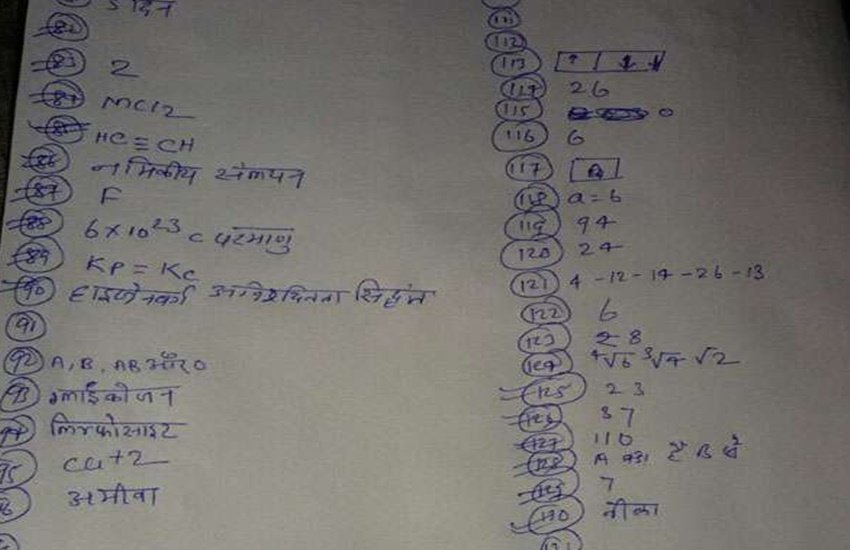 82
83 2
84 MCl2
85 HC≡CH
86 नाभिकीय संलयन
87 F
88 6×10²³ C परमाणु
89 KP = Kc
90 सिद्धांत
91
92 A, B, AB और O
93 ग्लाईकोजन
94 लिम्फोसाइट
95 Ca+2
96 अमीबा
111
112
113 ↑ ↓ ↓
114 26
115 0
116 6
117
118 a = 6
119 94
120 24
121 4-12-14-26-13
122 6
123 28
124 ⁴√6 ³√4 √2
125 23
126 37
127 110
128 A बड़ा है B से
129 7
130 नौका
131